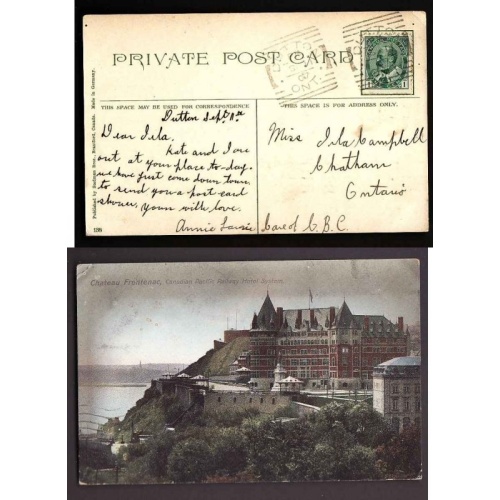 PRIVATE POST CARD
THIS SPACE MAY BE USED FOR CORRESPONDENCE
THIS SPACE IS FOR ADDRESS ONLY.
Published by Stedman Bros., Brantford, Canada. Made in Germany.
Dutton Sept 8th
Dear Ila,
Kate and I are
out at your place to-day.
we have just come down town
to send you a post card
shower, yours with love.
Annie
128
Miss Ila Campbell
Chatham
Ontario
Care of C.B.C
DUTTON
ONT.
1
Chateau Frontenac, Canadian Pacific Railway Hotel System.